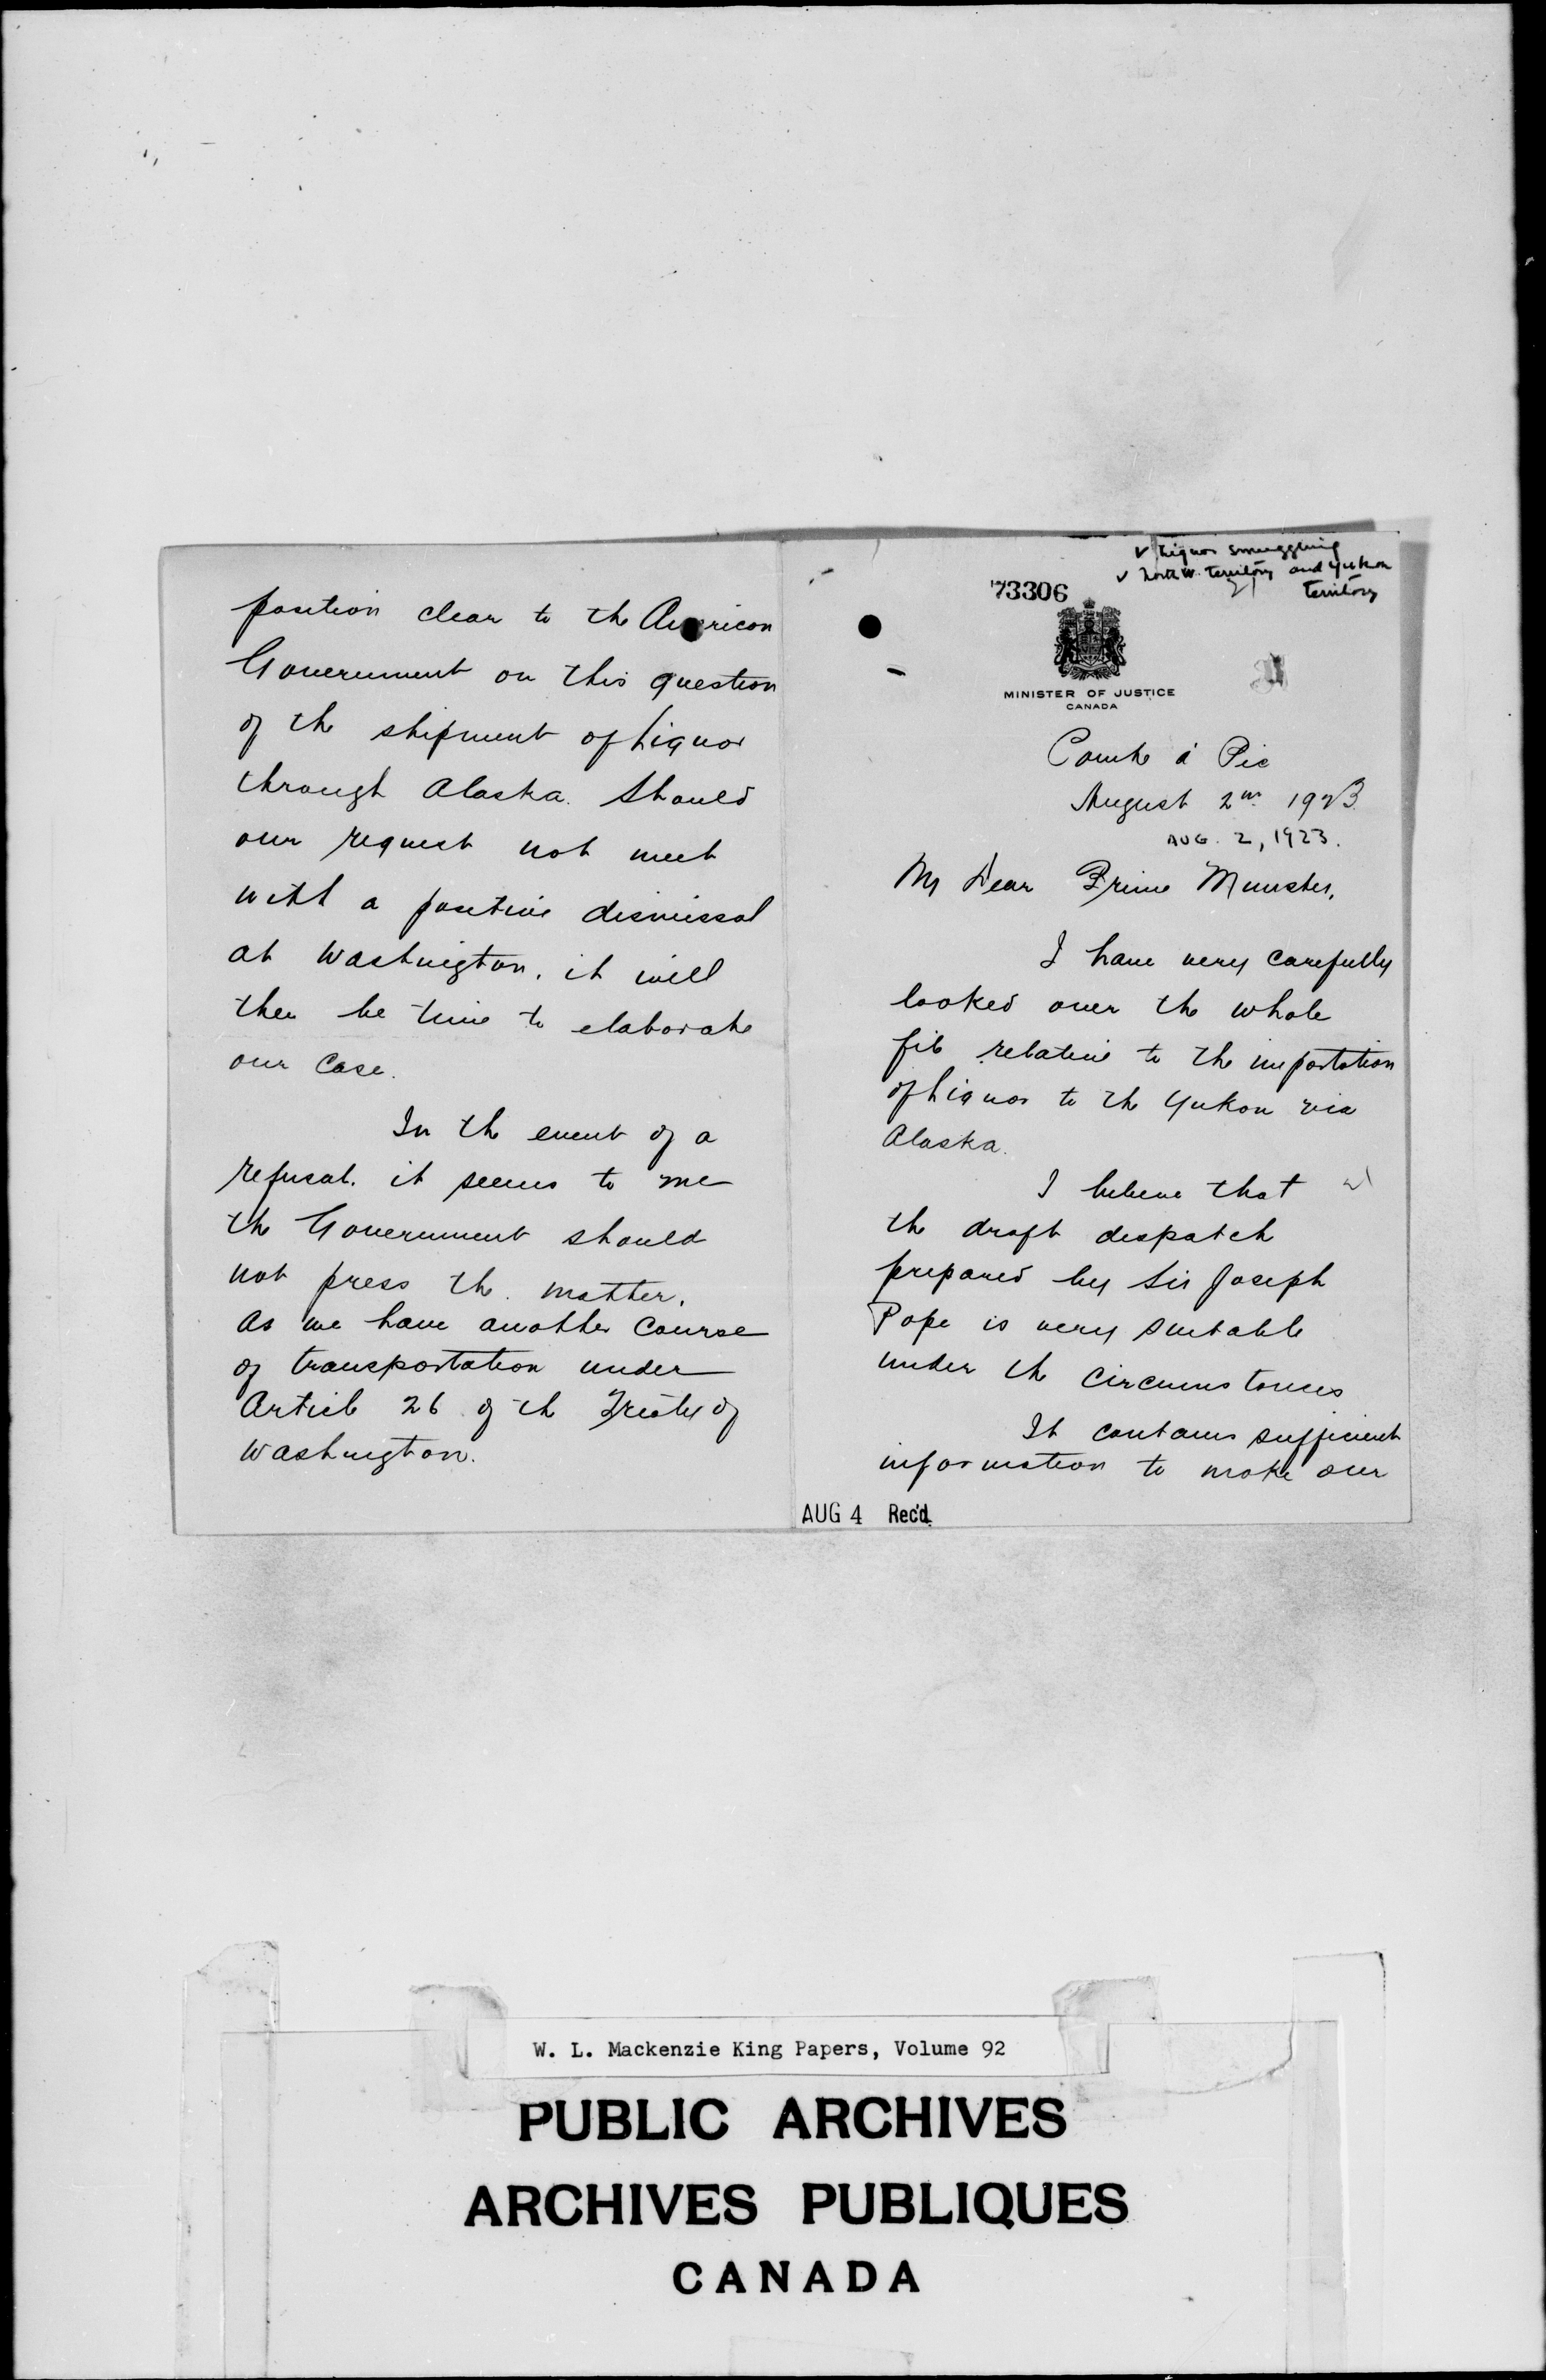 ✓ Liquor smuggling
✓ North W. Territory and Yukon
Territory
73306
MINISTER OF JUSTICE
CANADA
Pointe à Pic
August 2nd 1923
AUG. 2, 1923.
My Dear Prime Minister,
I have very carefully
looked over the whole
file relative to the importation
of Liquor to the Yukon via
Alaska.
I believe that
the draft despatch
prepared by Sir Joseph
Pope is very suitable
under the circumstances
It contains sufficient
information to make our
AUG 4 Rec'd.
position clear to the American
Government on this question
of the shipment of Liquor
through Alaska. Should
our request not meet
with a positive dismissal
at Washington, it will
then be time to elaborate
our case.
In the event of a
refusal, it seems to me
the Government should
not press the matter,
as we have another course
of transportation under
Article 26 of the Treaty of
Washington.
W. L. Mackenzie King Papers, Volume 92
PUBLIC ARCHIVES
ARCHIVES PUBLIQUES
CANADA